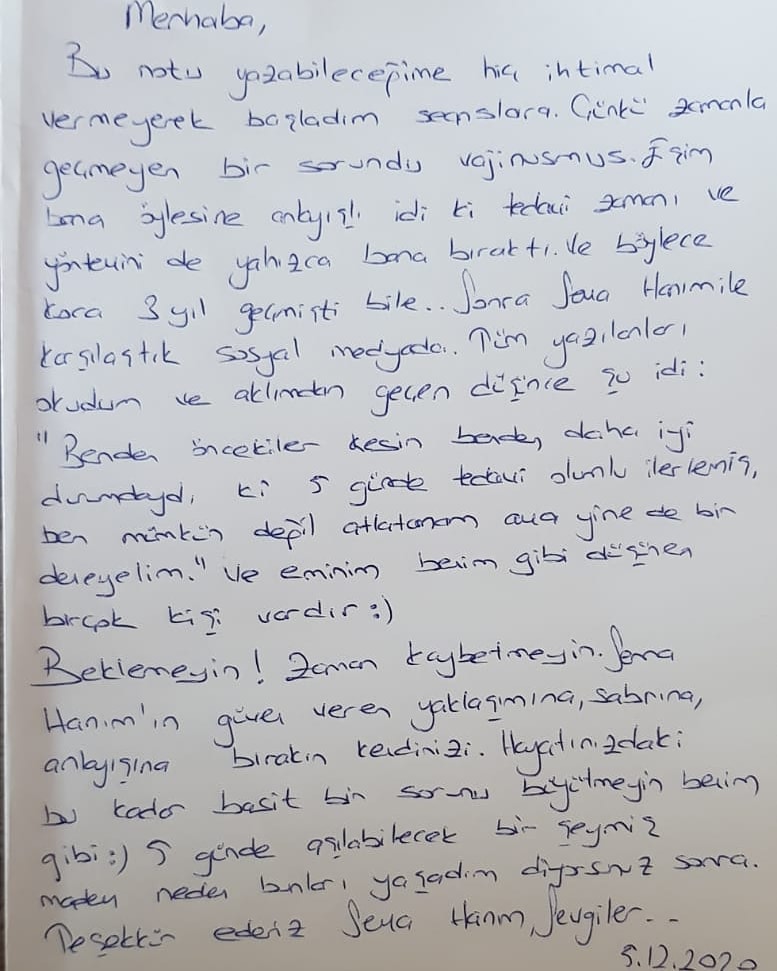 Merhaba,
Bu notu yazabileceğime hiç ihtimal
vermeyerek başladım seanslara. Çünkü zamanla
geçmeyen bir sorundu vajinusmus. Eşim
bana öylesine anlayışlı idi ki tedavi zamanı ve
yöntemini de yalnızca bana bıraktı. Ve böylece
koca 3 yıl geçmişti bile.. Sonra Sema Hanım ile
karşılaştık sosyal medyada. Tüm yazılanları
okudum ve aklımdan geçen düşünce şu idi:
"Benden öncekiler kesin benden daha iyi
durumdaydı ki 5 günde tedavi olumlu ilerlemiş,
ben mümkün değil atlatamam ama yine de bir
deneyelim." Ve eminim benim gibi düşünen
birçok kişi vardır :)
Beklemeyin! Zaman kaybetmeyin. Sema
Hanım'ın güven veren yaklaşımına, sabrına,
anlayışına bırakın kendinizi. Hayatınızdaki
bu kadar basit bir sorunu büyütmeyin benim
gibi :) 5 günde aşılabilecek bir şeymiş
madem neden bunları yaşadım diyorsunuz sonra.
Teşekkür ederiz Sema Hanım, Sevgiler..
5.12.2020